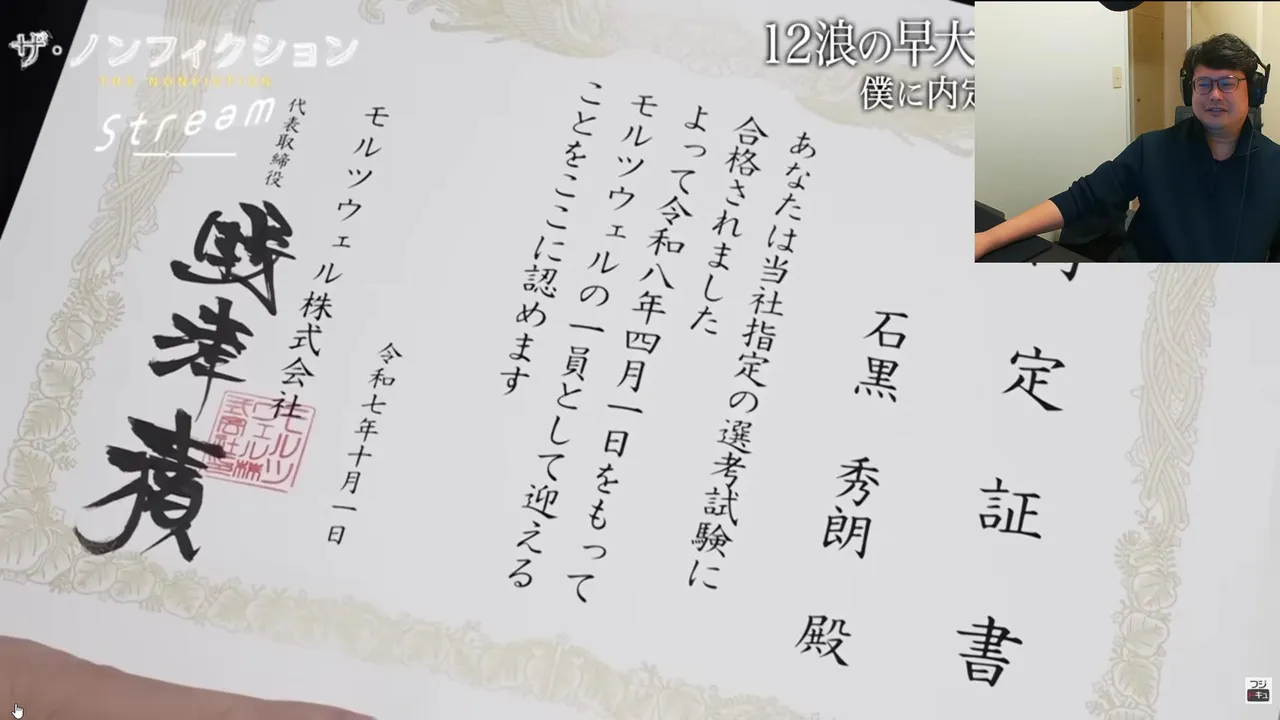 ザ・ノンフィクション
THE NONFICTION
Stream
12浪の早大
僕に内定
内定証書
石黒 秀朗 殿
あなたは当社指定の選考試験に
合格されました
よって令和八年四月一日をもって
モルツウェルの一員として迎える
ことをここに認めます
令和七年十月一日
モルツウェル株式会社
代表取締役
野津積
モルツ
ウェル株
式会社
フジ
ドキュ